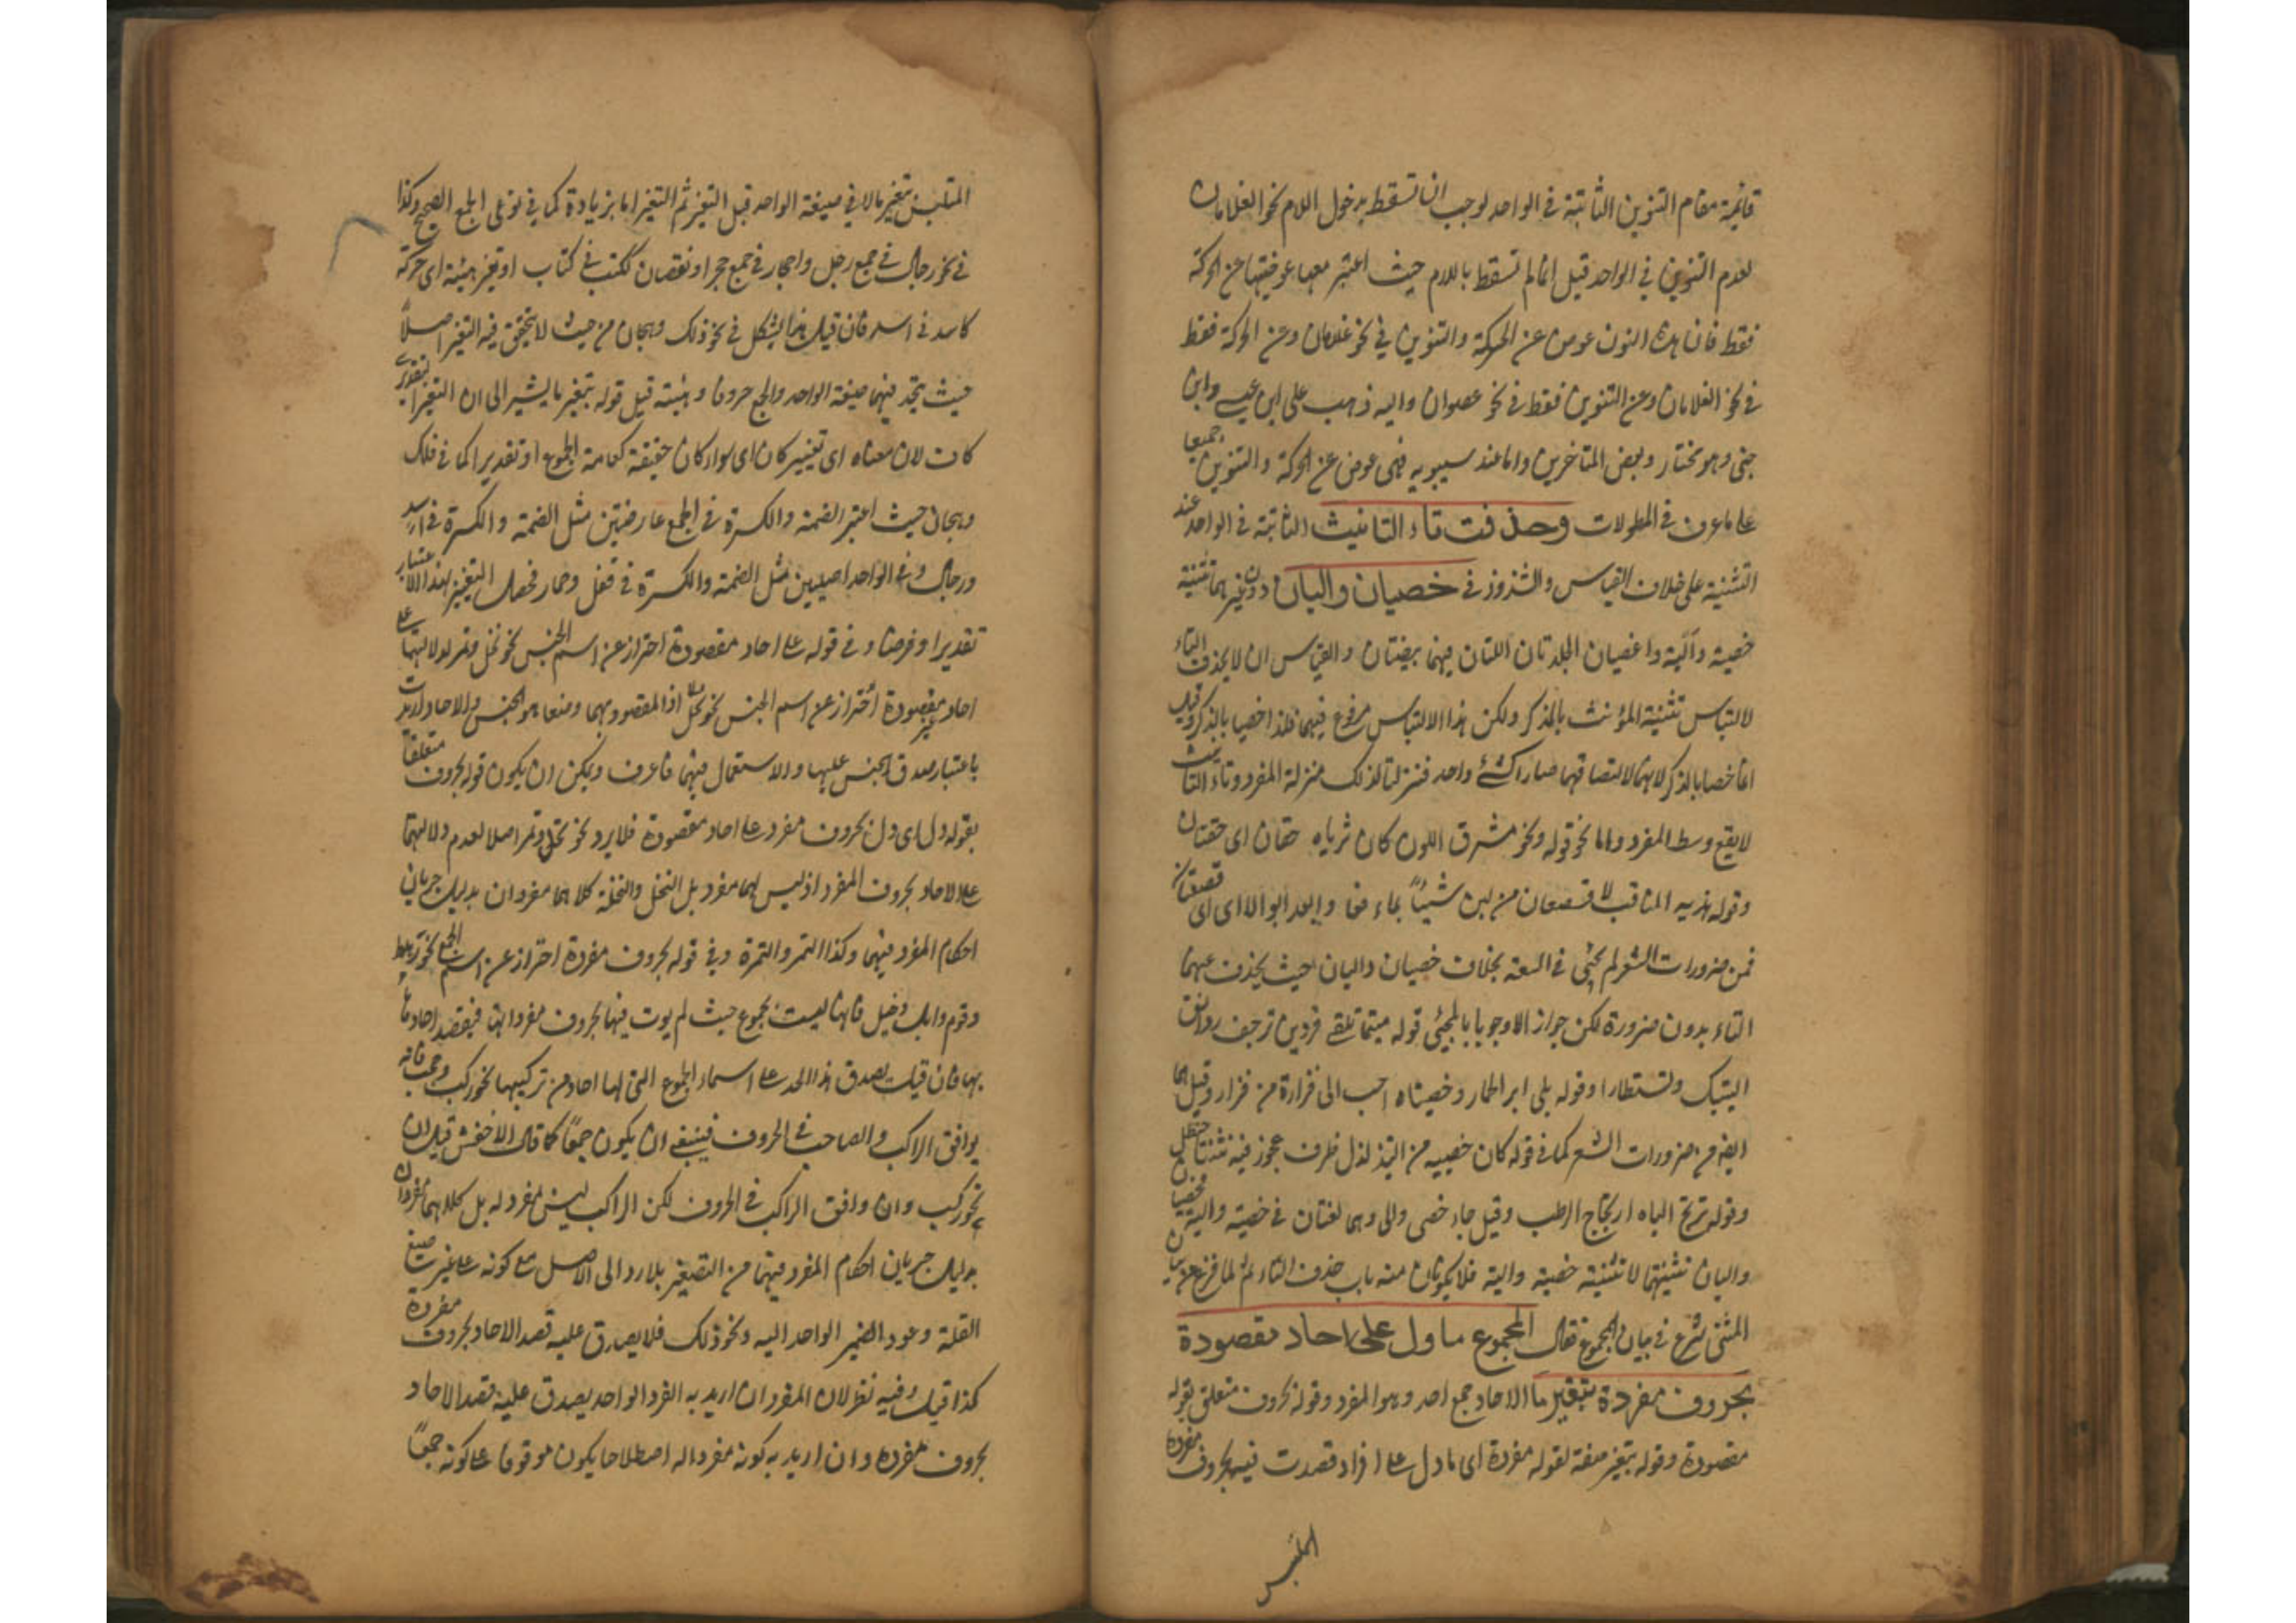 قائمة مقام التنوين الثابتة في الواحد لوجب ان تسقط بدخول اللام نحو الغلامان
لعدم التنوين في الواحد قيل انما لم تسقط باللام حيث اعتبر معها عوضيتها عن الحركة
فقط فان هذه النون عوض عن الحركة والتنوين في نحو غلامان وعن الحركة فقط
في نحو الغلامان وعن التنوين فقط في نحو عصوان واليه ذهب علي ابن عيسى وابن
جني وهو مختار وبعض المتاخرين واما عند سيبويه فهي عوض عن الحركة والتنوين جميعا
على ما عرف في المطولات وحذفت تاء التانيث الثابتة في الواحد عند
التثنية على خلاف القياس والشذوذ في خصيان واليان دون غيرهما تثنية
خصية وألية والخصيان الجلدتان اللتان فيهما بيضتان والقياس ان لا يحذف التاء
لالتباس تثنية المؤنث بالمذكر ولكن هذا الالتباس مرفوع فيهما فلذا خصا بالذكر وقيل
انما خصا بالذكر لانهما لالتصاقهما صارا كشئ واحد فنزلتا لذلك منزلة المفرد وتاء التانيث
لا يقع وسط المفرد واما نحو قوله ونحو مشرق اللون كان ثدياه حقان اى حقتان
وقوله شيئا بماء
فمن ضرورات الشعر لم يجئ في السعة بخلاف خصيان واليان حيث يحذف عنهما
التاء بدون ضرورة لكن جواز الا وجوبا بالمجئ قوله متى ما تلقني فردين ترجف روانف
اليتيك وتستطارا وقوله بلى اير الحمار وخصيتاه احب الى فزارة من فزار وقيل هما
ايضا من ضرورات الشعر كما في قوله كان خصييه من التدلدل ظرف عجوز فيه ثنتا حنظل
وقوله ترتج الياه ارتجاج الوطب وقيل جاء خصى والى وهما لغتان في خصية والية فخصيان
واليان تثنيتهما لا تثنية خصية والية فلا يكونان من باب حذف التاء ثم لما فرغ عن بيان
المثنى شرع في بيان المجموع فقال المجموع ما دل على احاد مقصودة
بحروف مفردة بتغير ما الاحاد جمع احد وهو المفرد وقوله بحروف متعلق بقوله
مقصودة وقوله بتغير صفة لقوله مفردة اى ما دل على افراد قصدت فيه بحروف مفرده
المتلبس
المتلبس بتغير ما لا في صيغة الواحد قبل التغير ثم التغير اما بزيادة كما في نوعي الجمع الصحيح وكذا
في نحو رجال في جمع رجل واحجار في جمع حجر او نقصان ككتب في كتاب او تغير هيئة اى حركة
كاسد في اسد فان قيل هذا يشكل في نحو فلك وهجان من حيث لا يتحقق فيه التغير اصلاً
حيث يتحد فيهما صيغة الواحد والجمع حروفا وهيئة قيل قوله بتغير ما يشير الى ان التغير
كانت لان معناه اى تغيير كان اى سواء كان حقيقة كعامة الجموع او تقديرا كما في فلك
وهجان حيث اعتبر الضمة والكسرة في الجمع عارضتين مثل الضمة والكسرة في اسد
ورجال وفي الواحد اصليين مثل الضمة والكسرة في قفل وحمار فحصل التغيير بهذا الاعتبار
تقديرا وفرضا وفي قوله على احاد مقصودة احتراز عن اسم الجنس نحو نخل وتمر لدلالتهما على
احاد غير مقصودة احتراز عن اسم الجنس نحو نخل اذ المقصود بهما وضعا هو الجنس والاحاد اريدت
باعتبار صدق الجنس عليها والاستعمال فيهما ما عرف ويمكن ان يكون قوله بحروف متعلقا
بقوله دل اى دل بحروف مفرد على احاد مقصودة فلا يرد نحو نخل وتمر اصلا لعدم دلالتهما
على الاحاد بحروف المفرد اذ ليس لهما مفرد بل النخل والنخلة كلاهما مفردان بدليل جريان
احكام المفرد فيهما وكذا التمر والتمرة وفي قوله بحروف مفردة احتراز عن اسم الجمع نحو رهط
وقوم وابل وخيل فانها ليست بجموع حيث لم يوت فيها بحروف مفرداتها فيقصد احادها
بها فان قيل يصدق هذا الحد على اسماء الجموع التي لها احاد من تركيبها نحو ركب وصحب فانه
يوافق الراكب والصاحب في الحروف فينبغي ان يكون جمعًا كما قال الاخفش قيل ان
نحو ركب وان وافق الراكب في الحروف لكن الراكب ليس بمفرد له بل كلاهما مفردان
بدليل جريان احكام المفرد فيهما من التصغير بلا رد الى الاصل مع كونه على غير صيغ
القلة وعود الضمير الواحد اليه ونحو ذلك فلا يصدق عليه قصد الاحاد بحروف مفردة
كذا قيل وفيه نظر لان المفرد ان اريد به الفرد الواحد يصدق عليه قصد الاحاد
بحروف مفرده وان اريد به كونه مفردا له اصطلاحا يكون موقوفا على كونه جمعًا